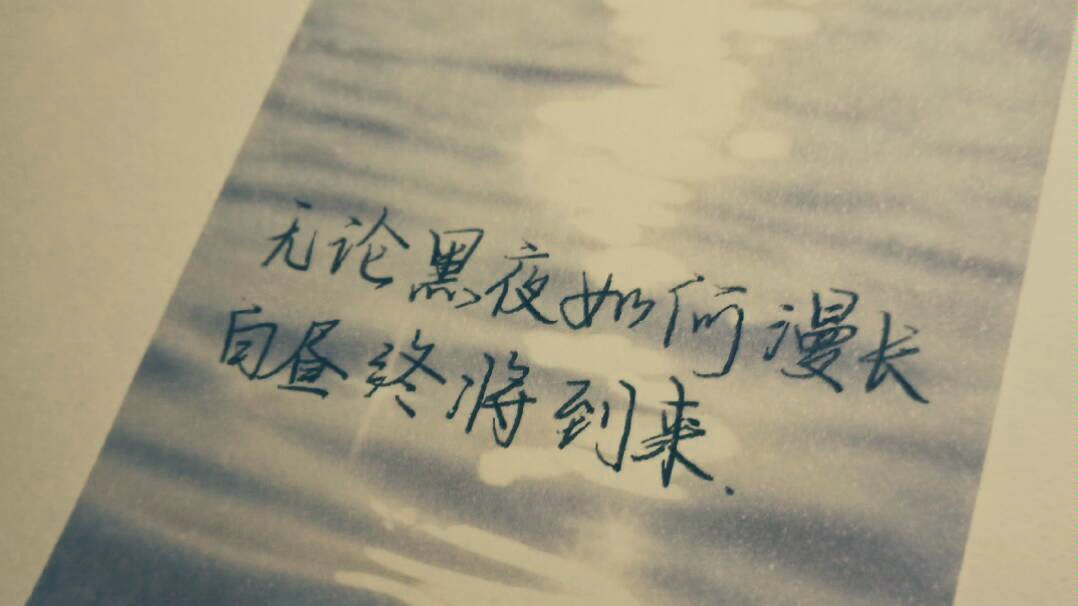 无论黑夜如何漫长
白昼终将到来.